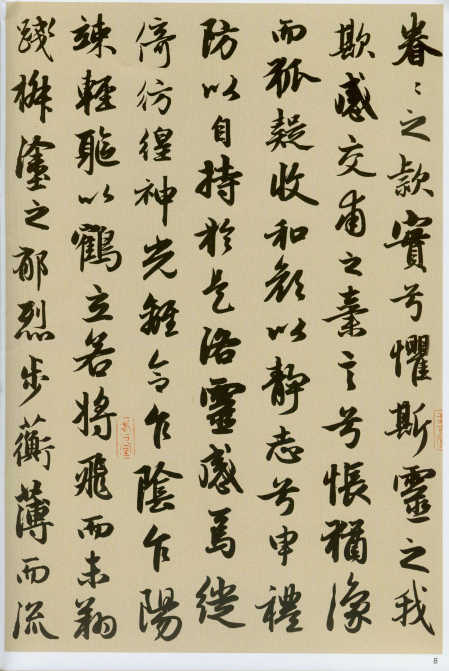 眷〻之款實兮懼斯靈之我
欺感交甫之棄言兮悵猶豫
而狐疑收和顏以靜志兮申禮
防以自持於是洛靈感焉徙
倚彷徨神光離合乍陰乍陽
竦輕軀以鶴立若將飛而未翔
踐椒塗之郁烈步蘅薄而流
8